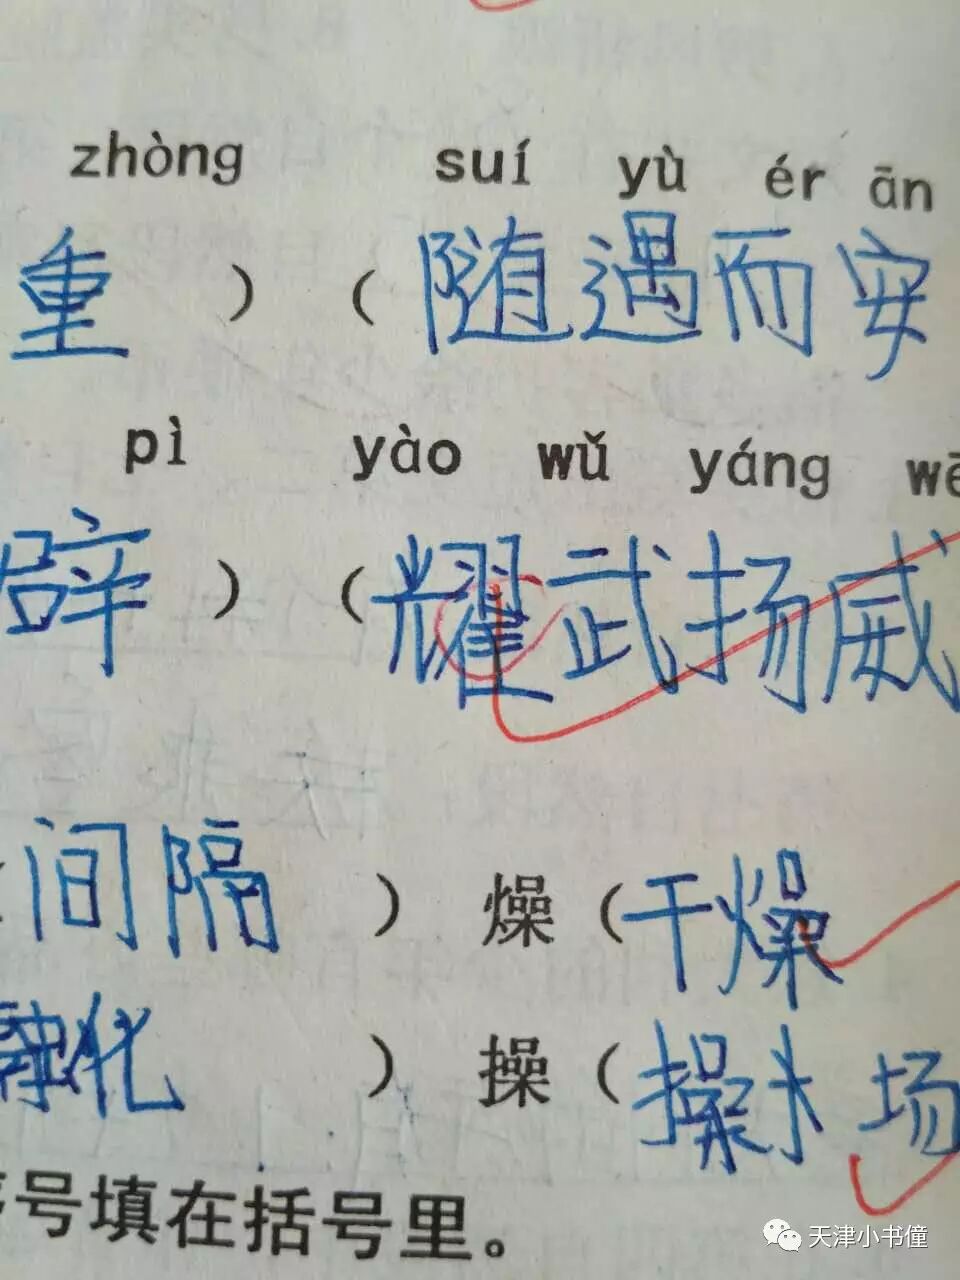 zhòng suí yù ér ān
重 ) ( 随遇而安
pì yào wǔ yáng wē
辟 ) ( 耀武扬威
间隔 ) 燥 ( 干燥
融化 ) 操 ( 操场
号填在括号里。
天津小书僮